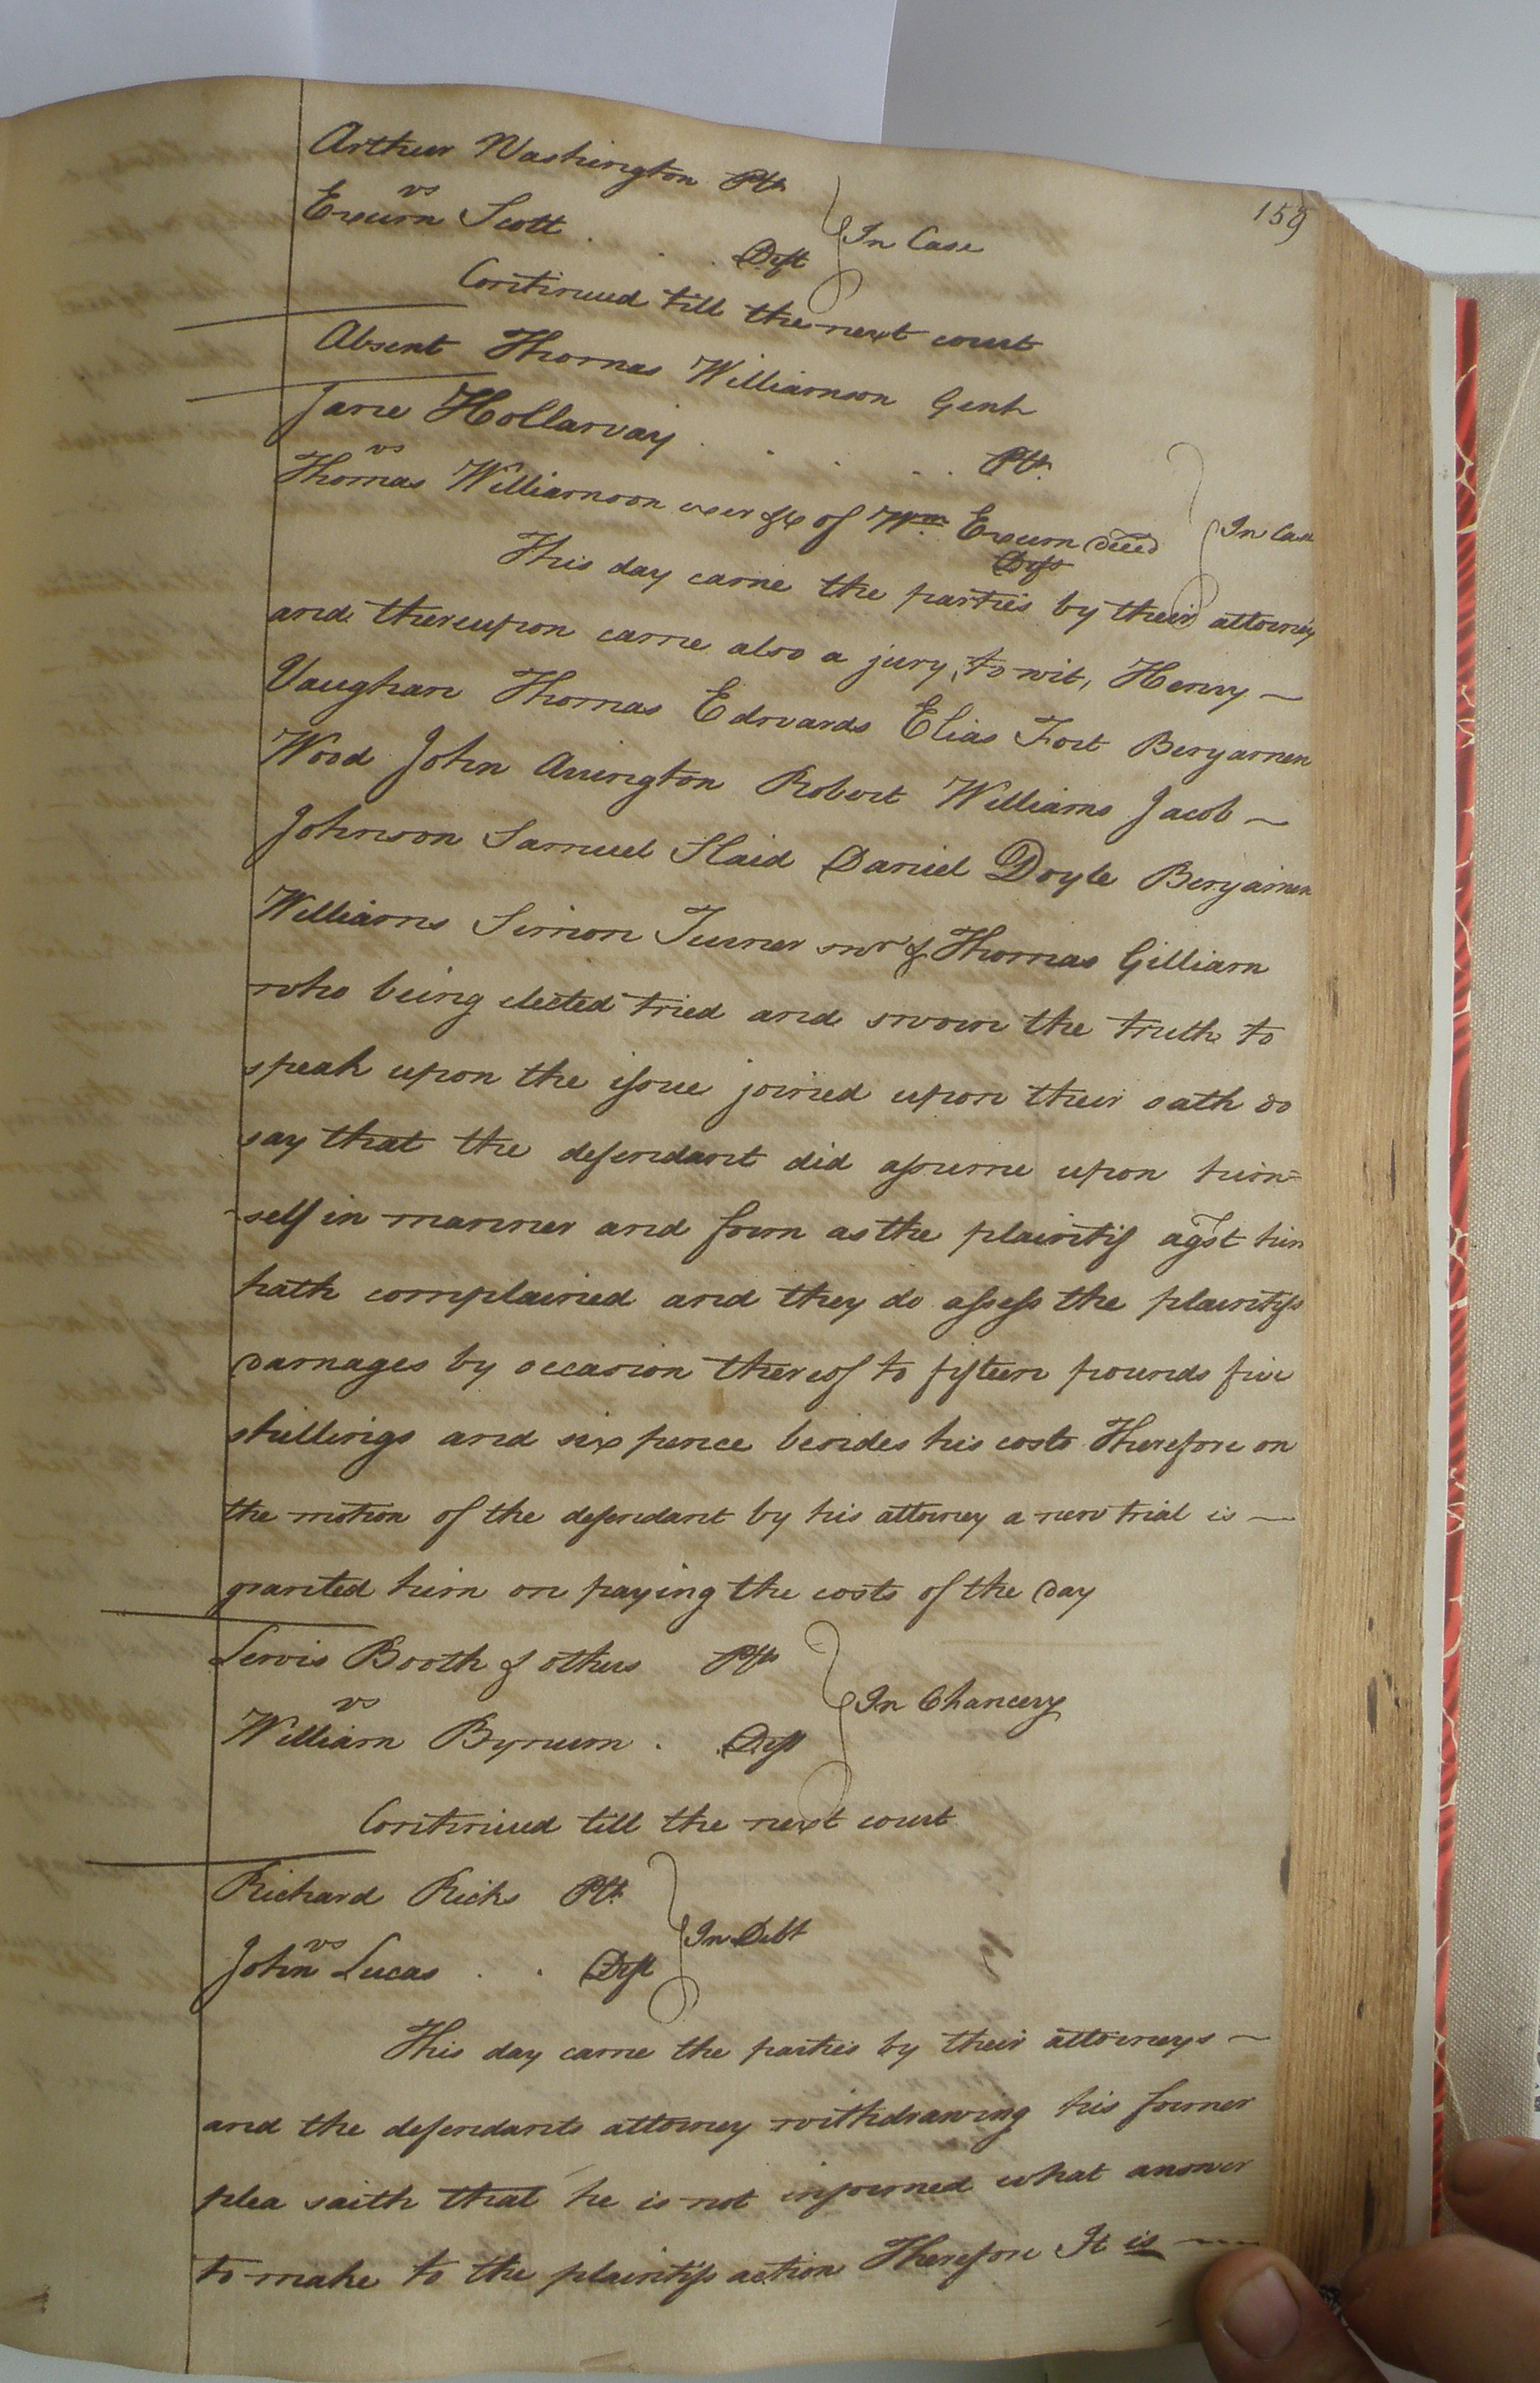 159
Arthur Washington Plt.
vs
Exum Scott . . . Deft
In Case
Continued till the next court
Absent Thomas Williamson Gent
Jane Hollaway . . . . . Plt.
vs
Thomas Williamson exer &c of Wm. Exum deced
Deft
In Case
This day came the parties by their attorney
and thereupon came also a jury, to wit, Henry
Vaughan Thomas Edwards Elias Fort Benjamen
Wood John Arrington Robert Williams Jacob
Johnson Samuel Slaid Daniel Doyle Benjamen
Williams Simon Turner snr & Thomas Gilliam
who being elected tried and sworn the truth to
speak upon the issue joined upon their oath do
say that the defendant did assume upon him=
-self in manner and form as the plaintif agst him
hath complained and they do assess the plaintifs
damages by occasion thereof to fifteen pounds five
shillings and six pence besides his costs Therefore on
the motion of the defendant by his attorney a new trial is
granted him on paying the costs of the day
Lewis Booth & others Plfs
vs
William Bynum . Deft
In Chancery
Continued till the next court
Richard Ricks Plt.
vs
John Lucas . . Deft
In Debt
This day came the parties by their attorneys
and the defendants attorney withdrawing his former
plea saith that he is not informed what answer
to make to the plaintifs action Therefore It is